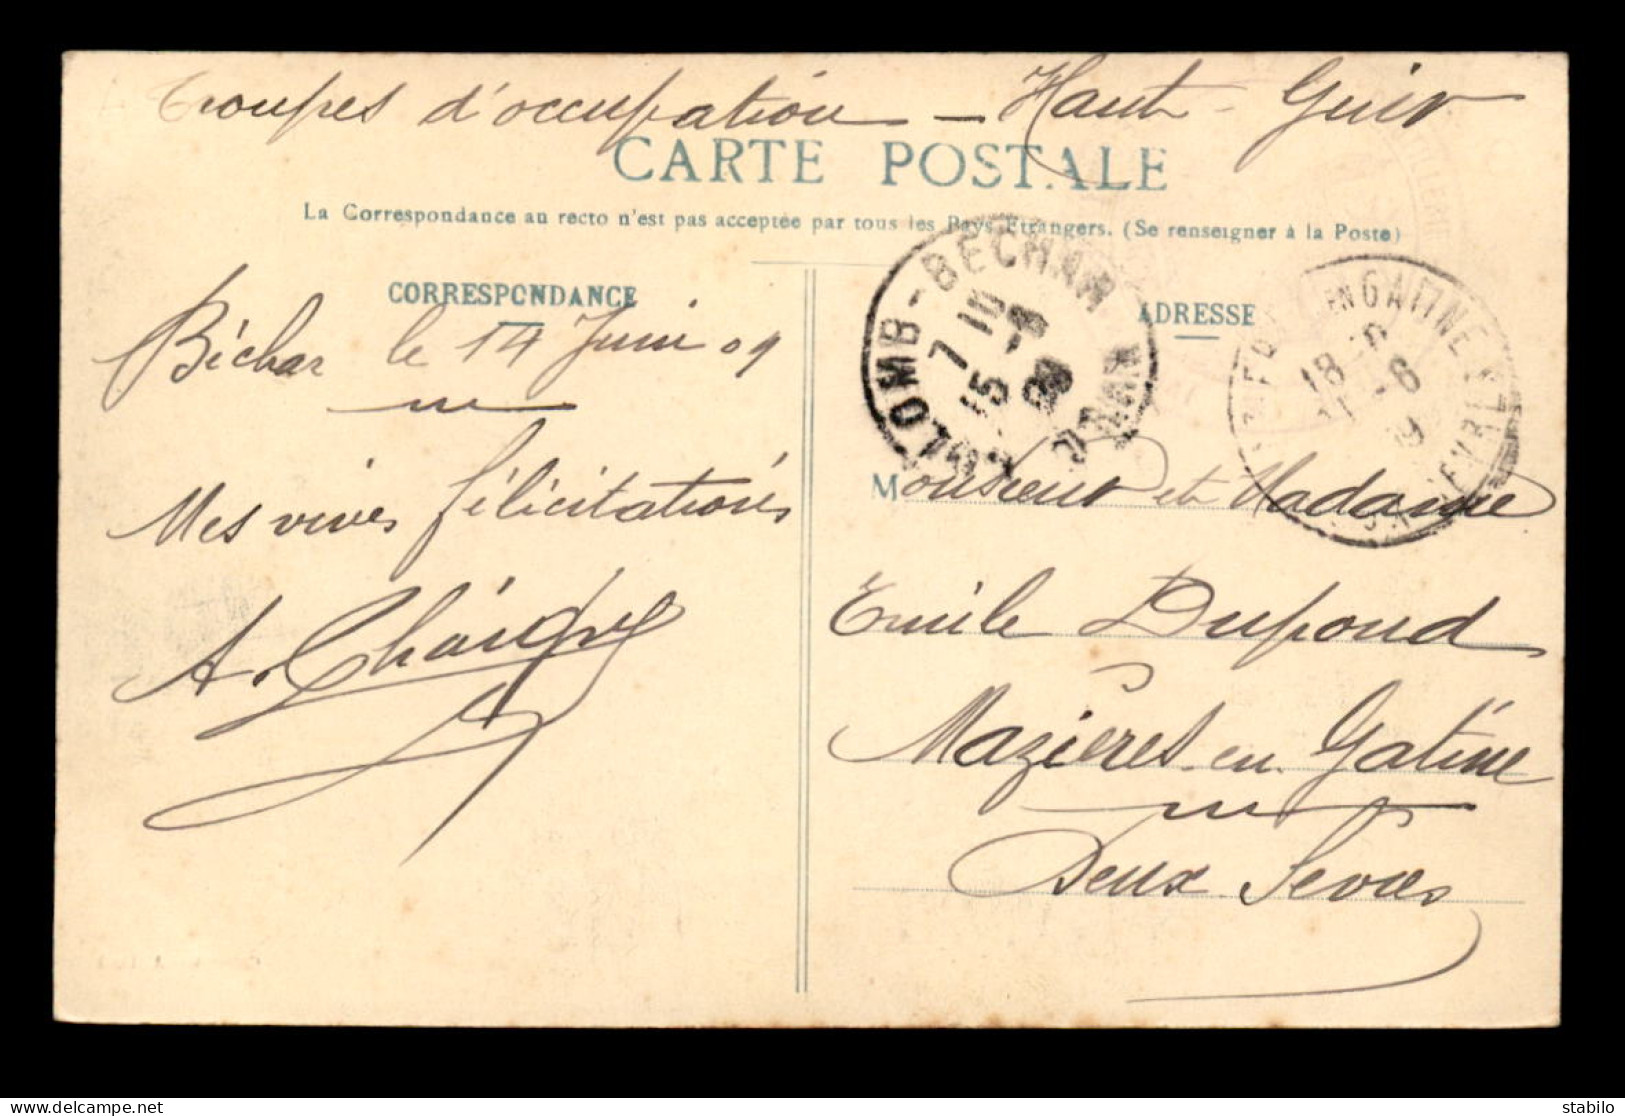 Troupes d'occupation - Haut-Guir
CARTE POSTALE
La Correspondance au recto n'est pas acceptée par tous les Pays Etrangers. (Se renseigner à la Poste)
CORRESPONDANCE
Béchar le 14 Juin 09
Mes vives félicitations
ADRESSE
COLOMB-BECHAR
ORAN
7 15
15 -6
09
EN GATINE
18
-6
Monsieur et Madame
Emile Dupond
Mazières-en-Gatine
Deux Sèvres
stabilo